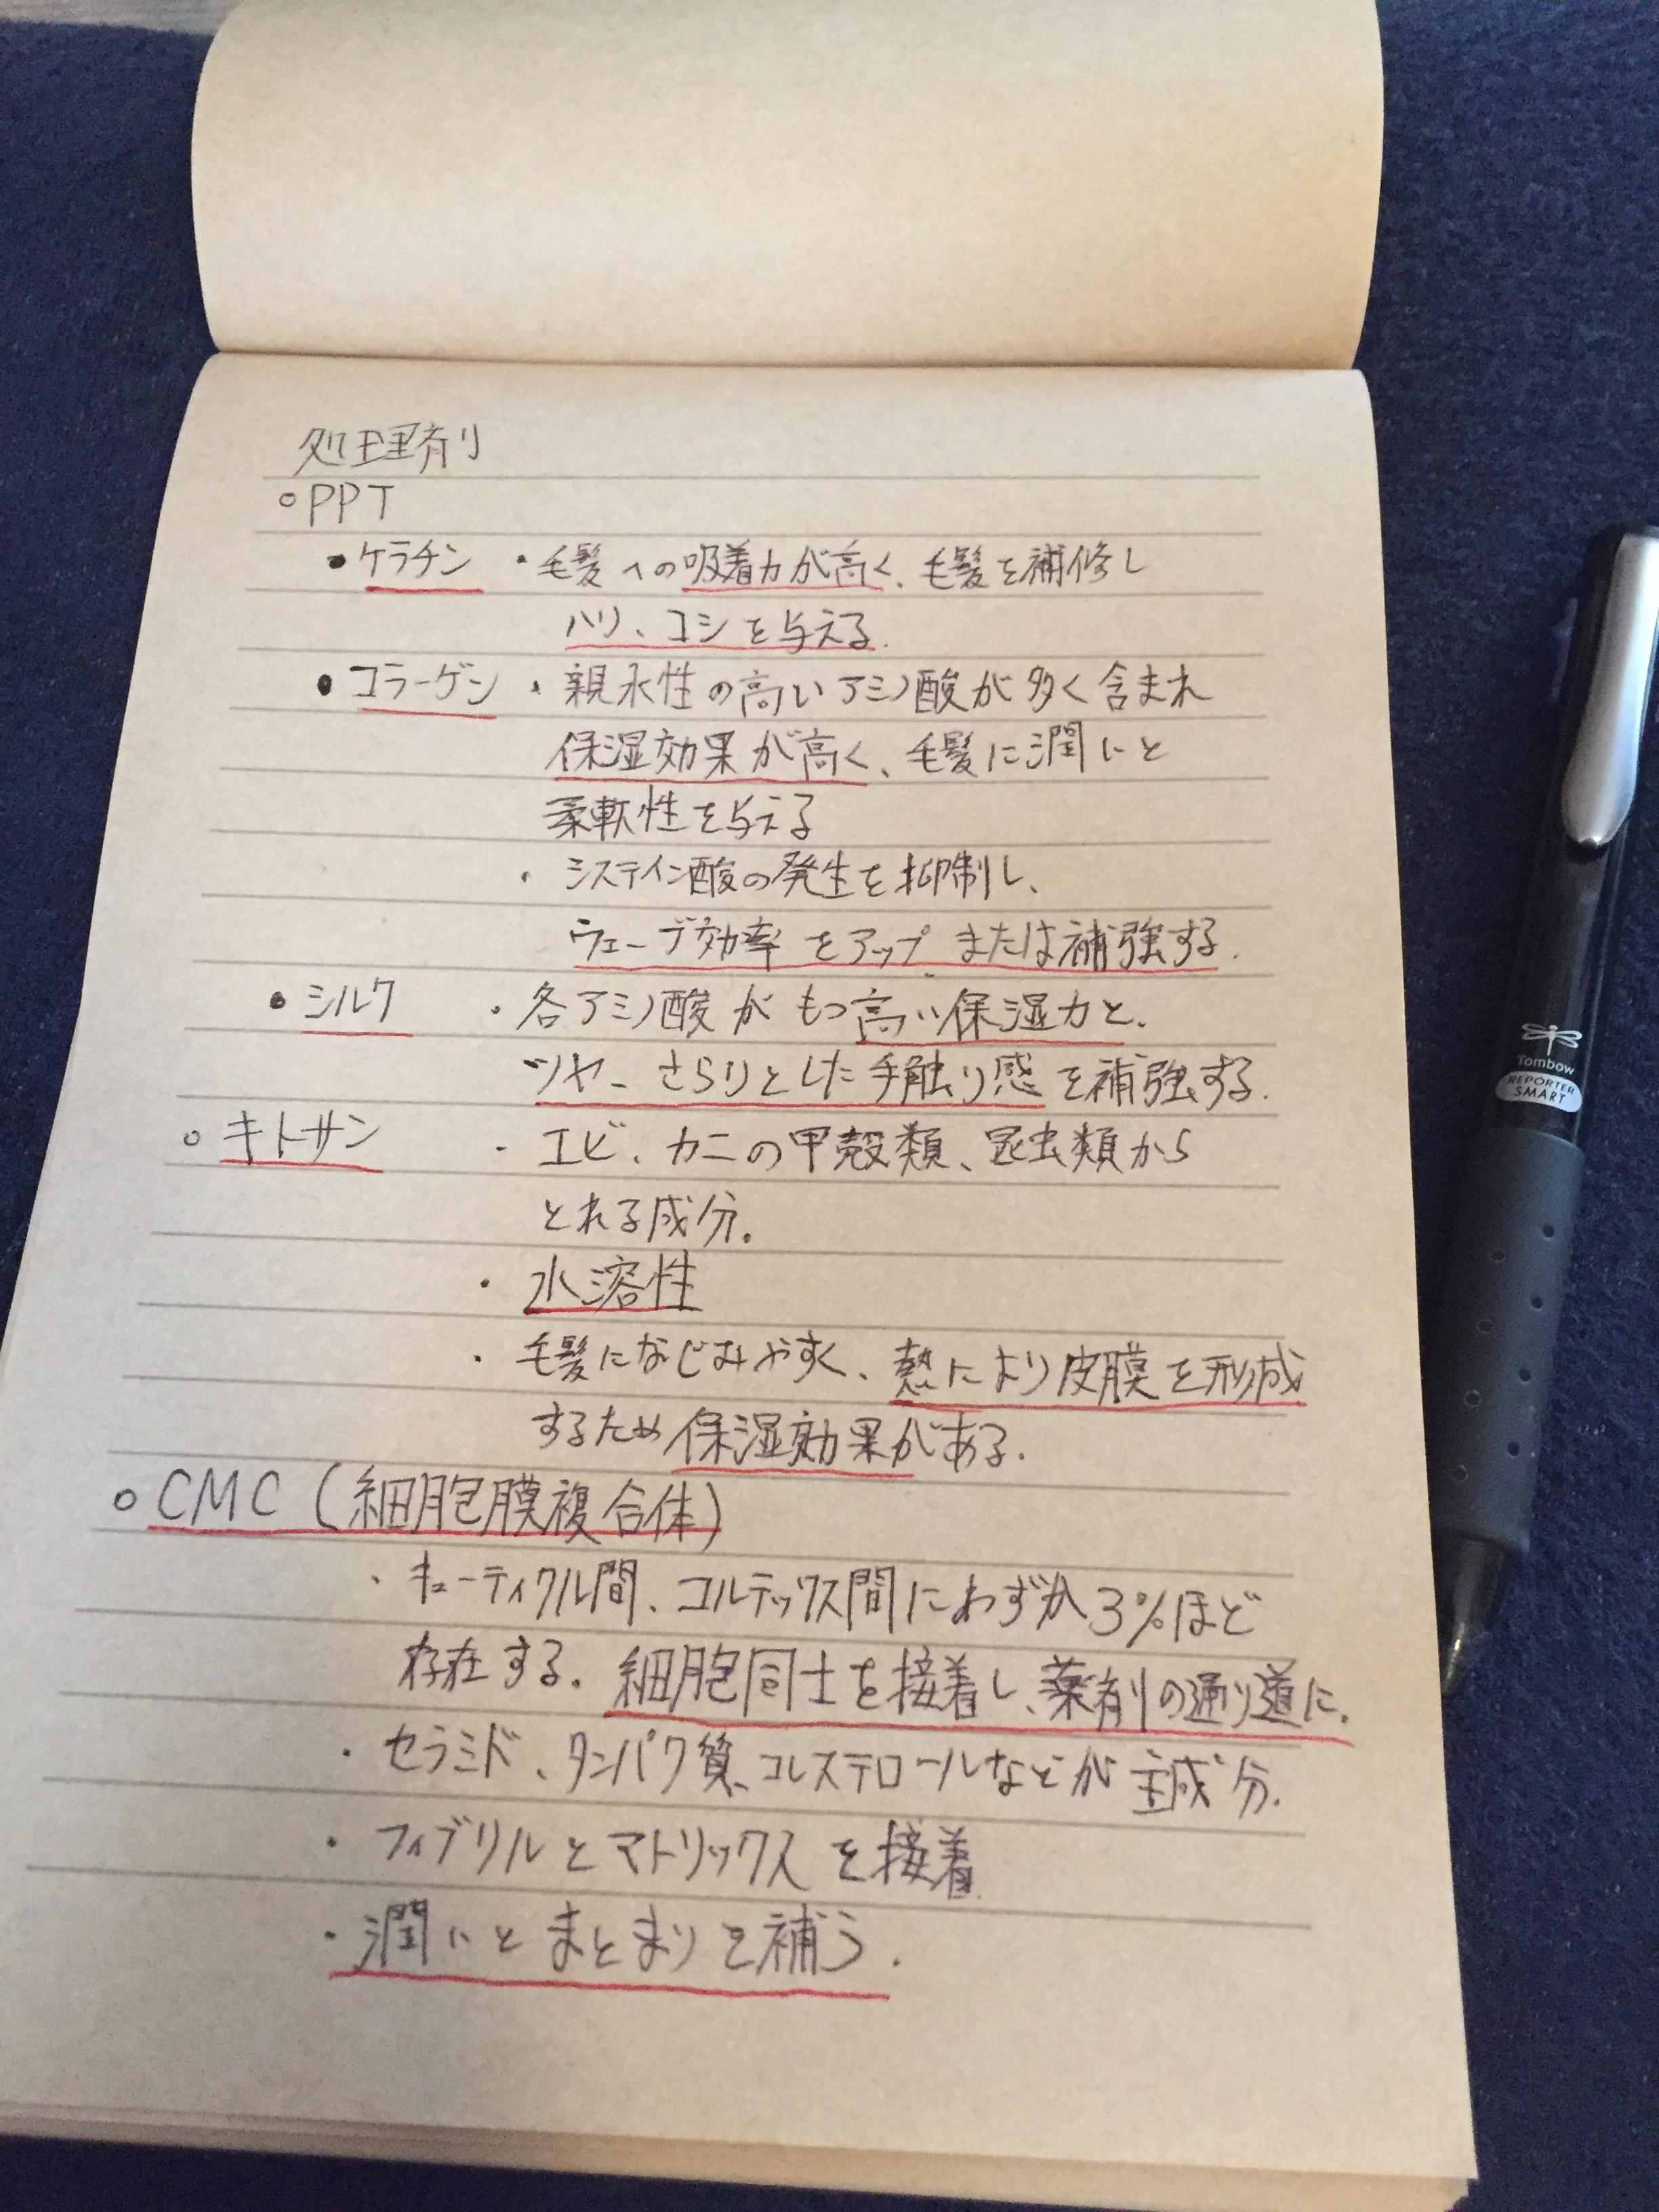 処理剤
○PPT
●ケラチン ・毛髪への吸着力が高く、毛髪を補修し
ハリ、コシを与える.
●コラーゲン ・親水性の高いアミノ酸が多く含まれ
保湿効果が高く、毛髪に潤いと
柔軟性を与える
・システイン酸の発生を抑制し、
ウェーブ効率をアップまたは補強する.
●シルク ・各アミノ酸がもつ高い保湿力と、
ツヤ、さらりとした手触り感を補強する.
○キトサン ・エビ、カニの甲殻類、昆虫類から
とれる成分。
・水溶性
・毛髪になじみやすく、熱により皮膜を形成
するため保湿効果がある.
○CMC(細胞膜複合体)
・キューティクル間、コルテックス間にわずか3%ほど
存在する. 細胞同士を接着し、薬剤の通り道に.
・セラミド、タンパク質、コレステロールなどが主成分.
・フィブリルとマトリックスを接着.
・潤いとまとまりを補う.
Tombow
REPORTER
SMART